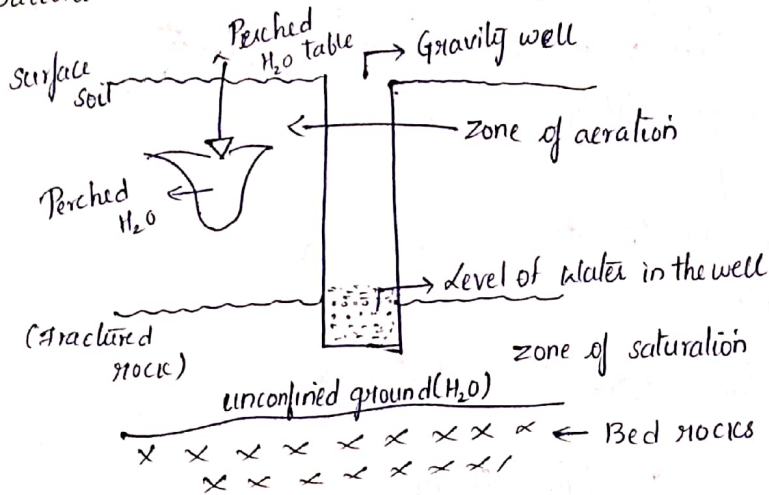 Perched
H₂O table
Gravity well
Surface
soil
zone of aeration
Perched
H₂O
Level of water in the well
(Fractured
rock)
zone of saturation
unconfined ground (H₂O)
Bed rocks